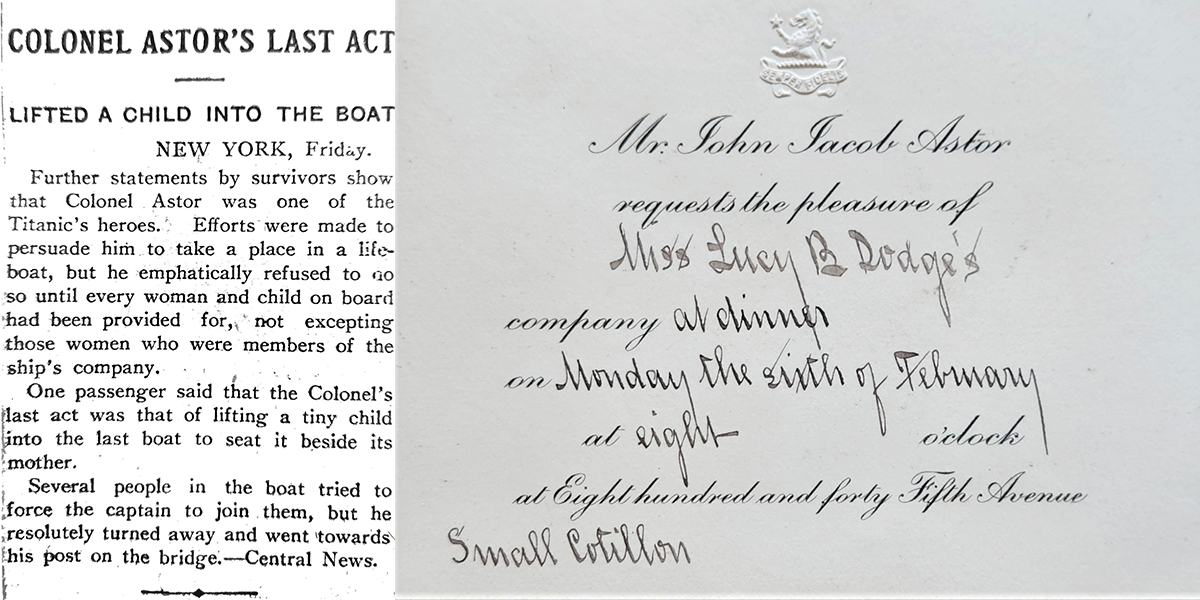 COLONEL ASTOR'S LAST ACT
LIFTED A CHILD INTO THE BOAT
NEW YORK, Friday.
Further statements by survivors show
that Colonel Astor was one of the
Titanic's heroes. Efforts were made to
persuade him to take a place in a life-
boat, but he emphatically refused to do
so until every woman and child on board
had been provided for, not excepting
those women who were members of the
ship's company.
One passenger said that the Colonel's
last act was that of lifting a tiny child
into the last boat to seat it beside its
mother.
Several people in the boat tried to
force the captain to join them, but he
resolutely turned away and went towards
his post on the bridge.—Central News.
SEMPER FIDELIS
Mr. John Jacob Astor
requests the pleasure of
Miss Lucy B Dodge's
company at dinner
on Monday the sixth of February
at eight o'clock
at Eight hundred and forty Fifth Avenue
Small Cotillon